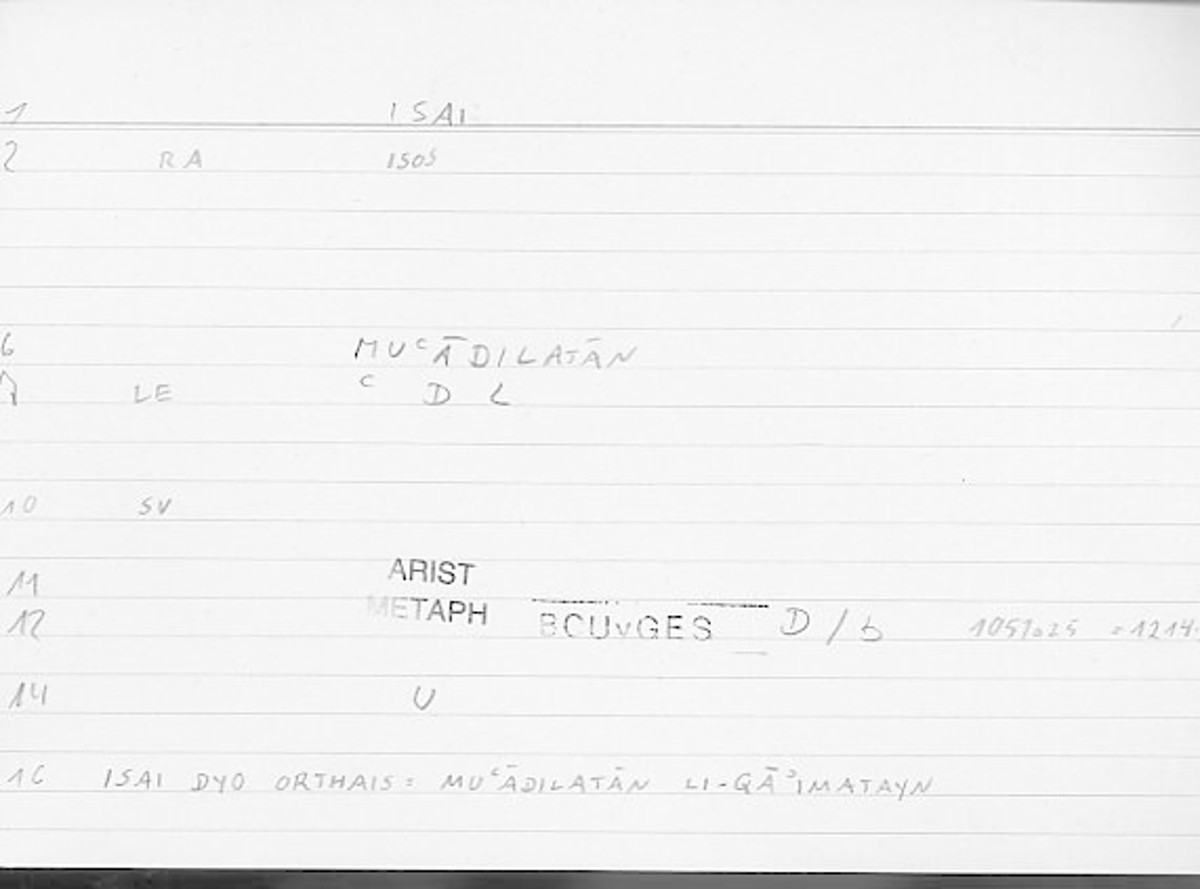 1 ISAI
2 RA ISOS
6 MUᶜĀDILATĀN
LE ᶜ D L
10 SV
11 ARIST
12 METAPH BOUYGES D / b 1051a25 = 1214
14 U
16 ISAI DYO ORTHAIS = MUᶜĀDILATĀN LI-QĀʾIMATAYN